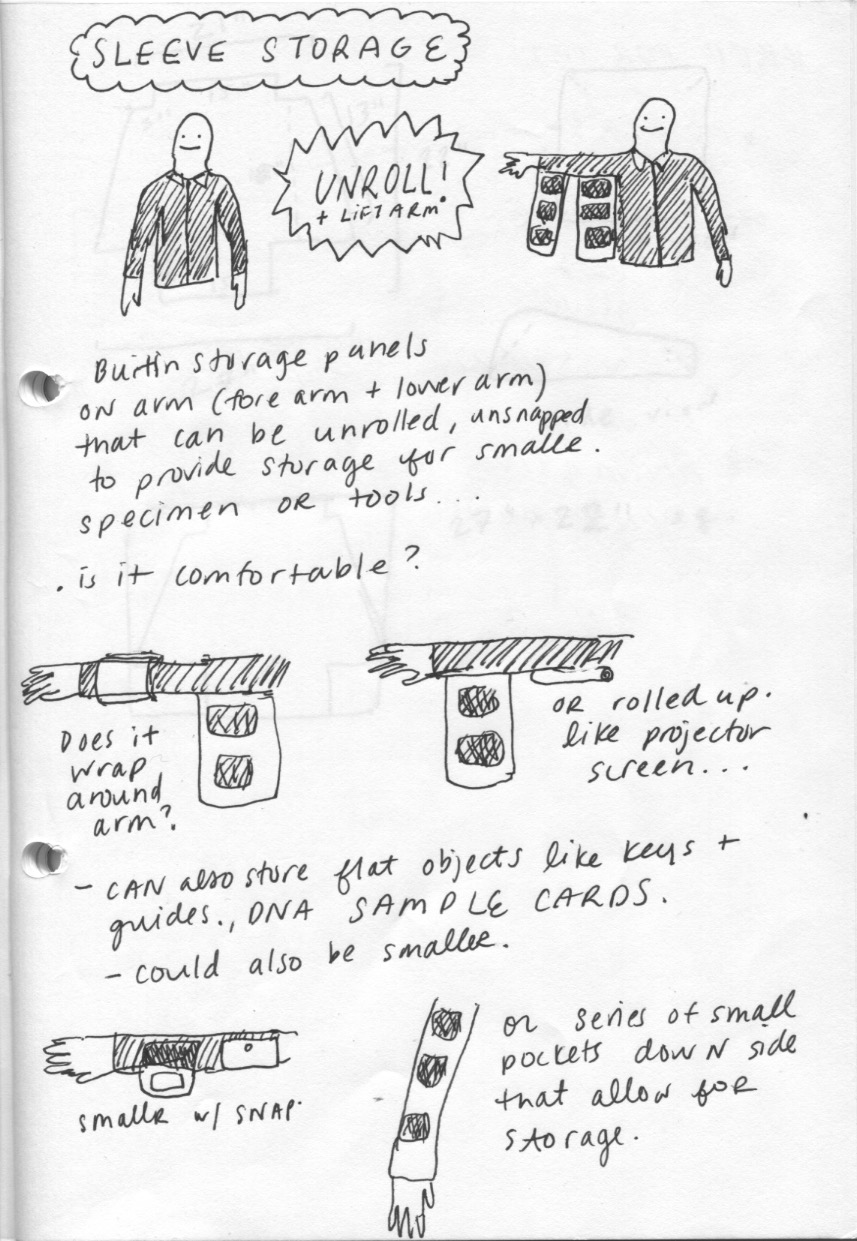 SLEEVE STORAGE
UNROLL!
+ LIFT ARM.
Built in storage panels
ON arm (fore arm + lower arm)
that can be unrolled, unsnapped
to provide storage for smalle.
specimen OR tools...
. is it comfortable?
Does it
wrap
around
arm?
OR rolled up.
like projector
screen...
- CAN also store flat objects like keys +
guides., DNA SAMPLE CARDS.
- could also be smaller.
smallR w/ SNAP.
or series of small
pockets down side
that allow for
storage.